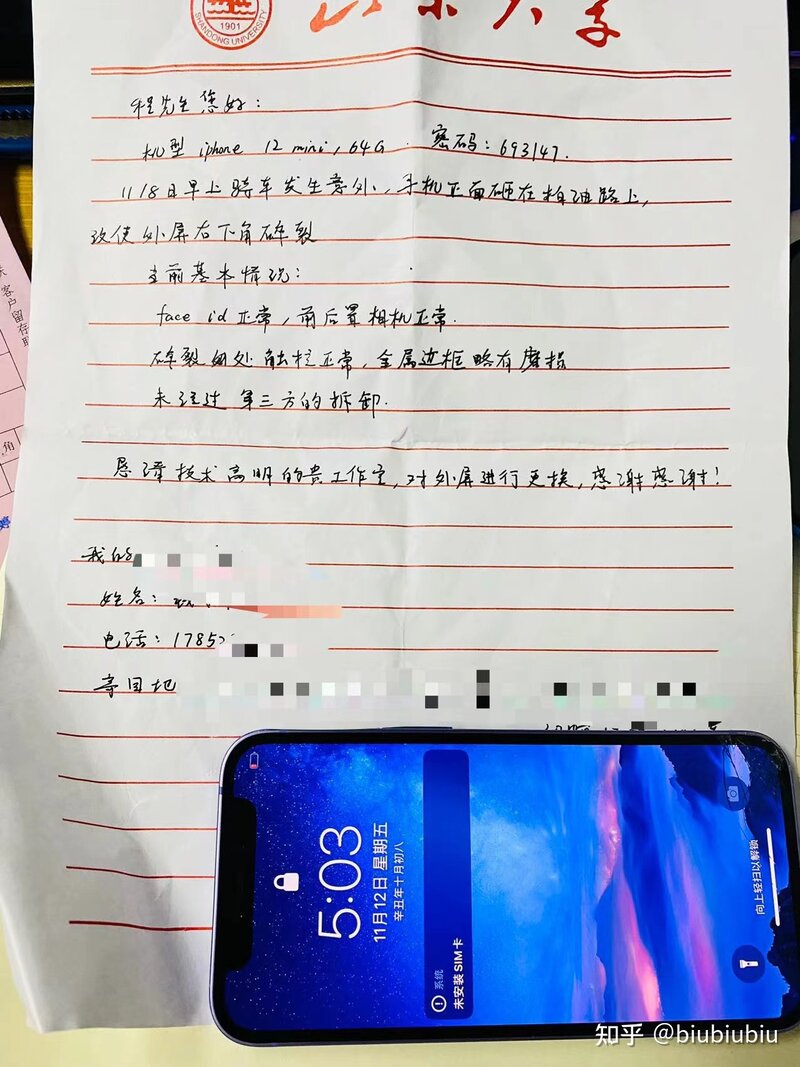 SHANDONG UNIVERSITY
1901
山东大学
程先生您好：
机型 iphone 12 mini, 64G. 密码：693147.
11/8日早上骑车发生意外，手机正面砸在柏油路上，
致使外屏右下角碎裂
当前基本情况：
face id 正常，前后置相机正常.
碎裂的处触控正常，金属边框略有磨损
未经过第三方的拆卸.
恳请技术高明的贵工作室，对外屏进行更换，感谢感谢！
我的
姓名：
电话：1785
寄回地
客户留存联
角
5:03
11月12日 星期五
辛丑年十月初八
系统
未安装 SIM 卡
向上轻扫以解锁
知乎 @biubiubiu